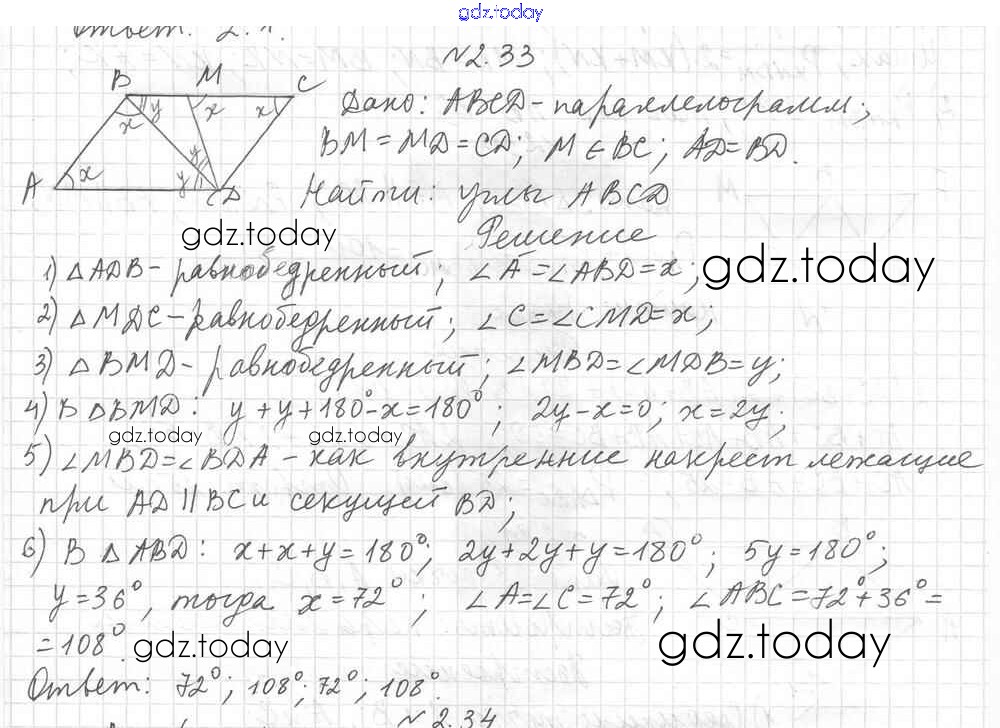 gdz.today
Ответ: 2.
N2.33
B M C
y x x
x
Дано: ABCD - параллелограмм;
BM = MD = CD; M ∈ BC; AD = BD.
y
A x y D
Найти: углы ABCD
gdz.today
Решение
1) △ADB - равнобедренный; ∠A = ∠ABD = x; gdz.today
2) △MDC - равнобедренный; ∠C = ∠CMD = x;
3) △BMD - равнобедренный; ∠MBD = ∠MDB = y;
4) В △BMD: y + y + 180° - x = 180°; 2y - x = 0; x = 2y;
gdz.today gdz.today
5) ∠MBD = ∠BDA - как внутренние накрест лежащие
при AD || BC и секущей BD;
6) В △ABD: x + x + y = 180°; 2y + 2y + y = 180°; 5y = 180°;
y = 36°, тогда x = 72°; ∠A = ∠C = 72°; ∠ABC = 72° + 36° =
= 108°. gdz.today gdz.today
Ответ: 72°; 108°; 72°; 108°.
N2.34